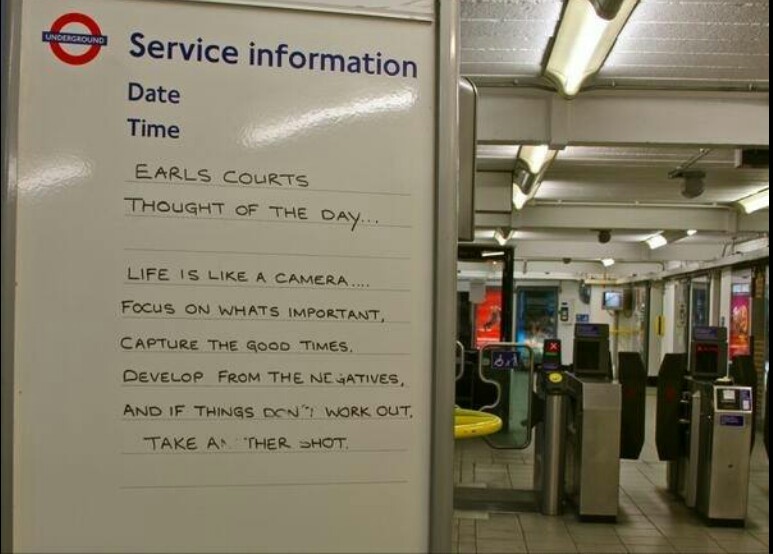 UNDERGROUND
Service information
Date
Time
EARLS COURTS
THOUGHT OF THE DAY...
LIFE IS LIKE A CAMERA....
FOCUS ON WHATS IMPORTANT,
CAPTURE THE GOOD TIMES.
DEVELOP FROM THE NEGATIVES,
AND IF THINGS DON'T WORK OUT.
TAKE ANOTHER SHOT.